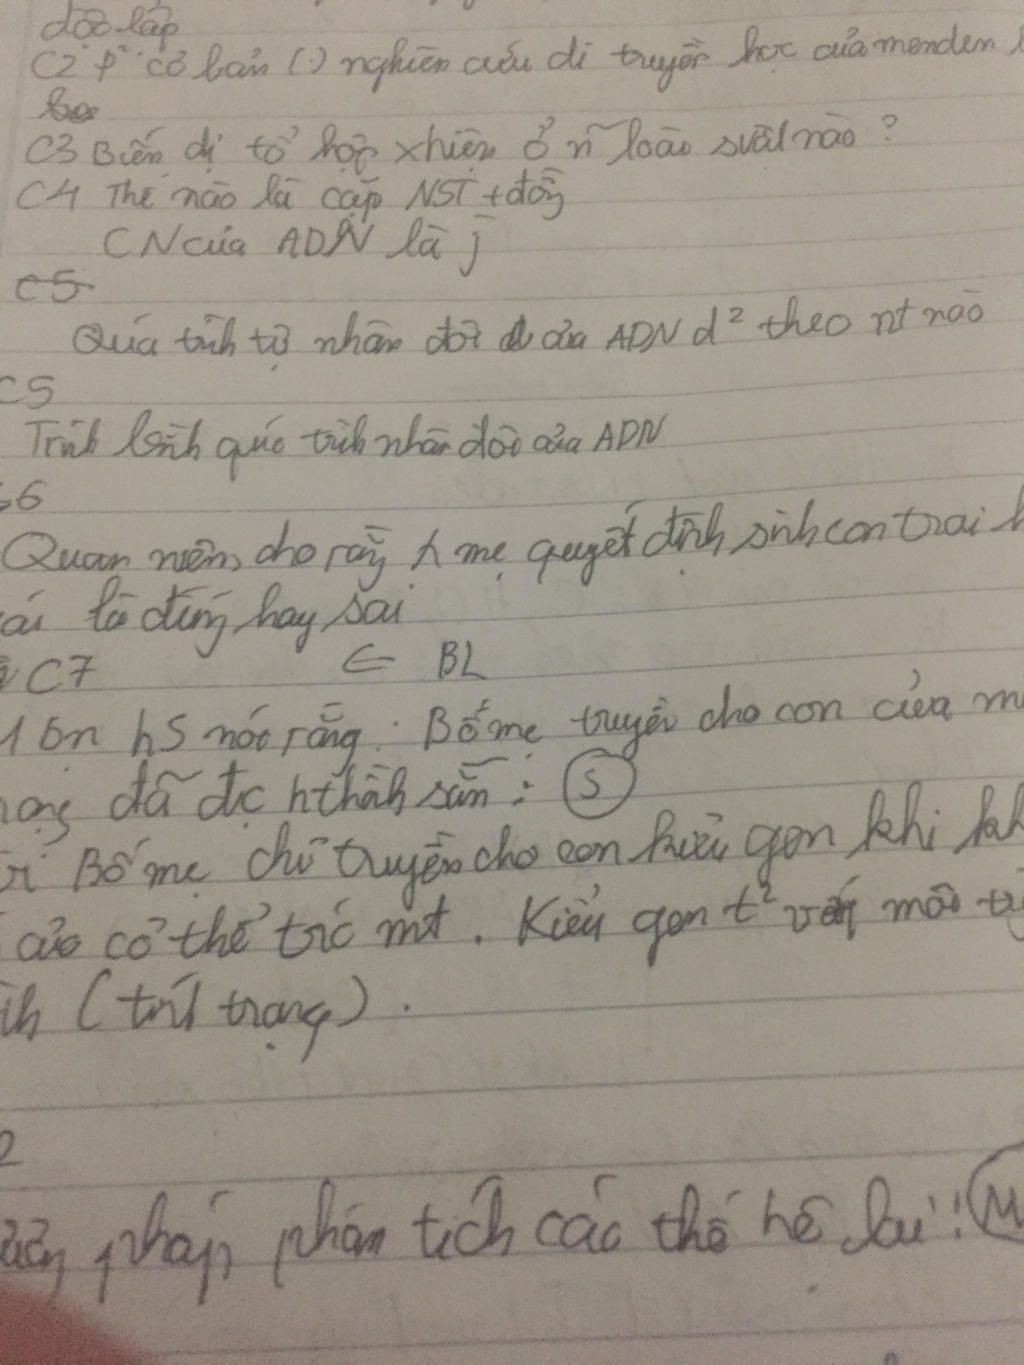 độc lập
C2 P² cơ bản (.) nghiên cứu di truyền học của menden
C3 Biến dị tổ hợp xhiện ở n~ loào svật nào ?
C4 Thế nào là cặp NST tđồng
CN của ADN là j
C5
Quá trình tự nhân đôi của ADN d² theo nt nào
C5
Trình bành quá trình nhân đôi của ADN
6
Quan niêm cho rằng mẹ quyết định sinh con trai
ái là đúng hay sai
C7 ⇐ BL
1 bn hS nói rằng : Bố mẹ truyền cho con của
đã đc hthành sẵn : S
Bố mẹ chỉ truyền cho con kiểu gen khi
của cơ thể trc mt . Kiểu gen t² với môi
(tính trạng) .
2
pháp phân tích các thế hệ lai :